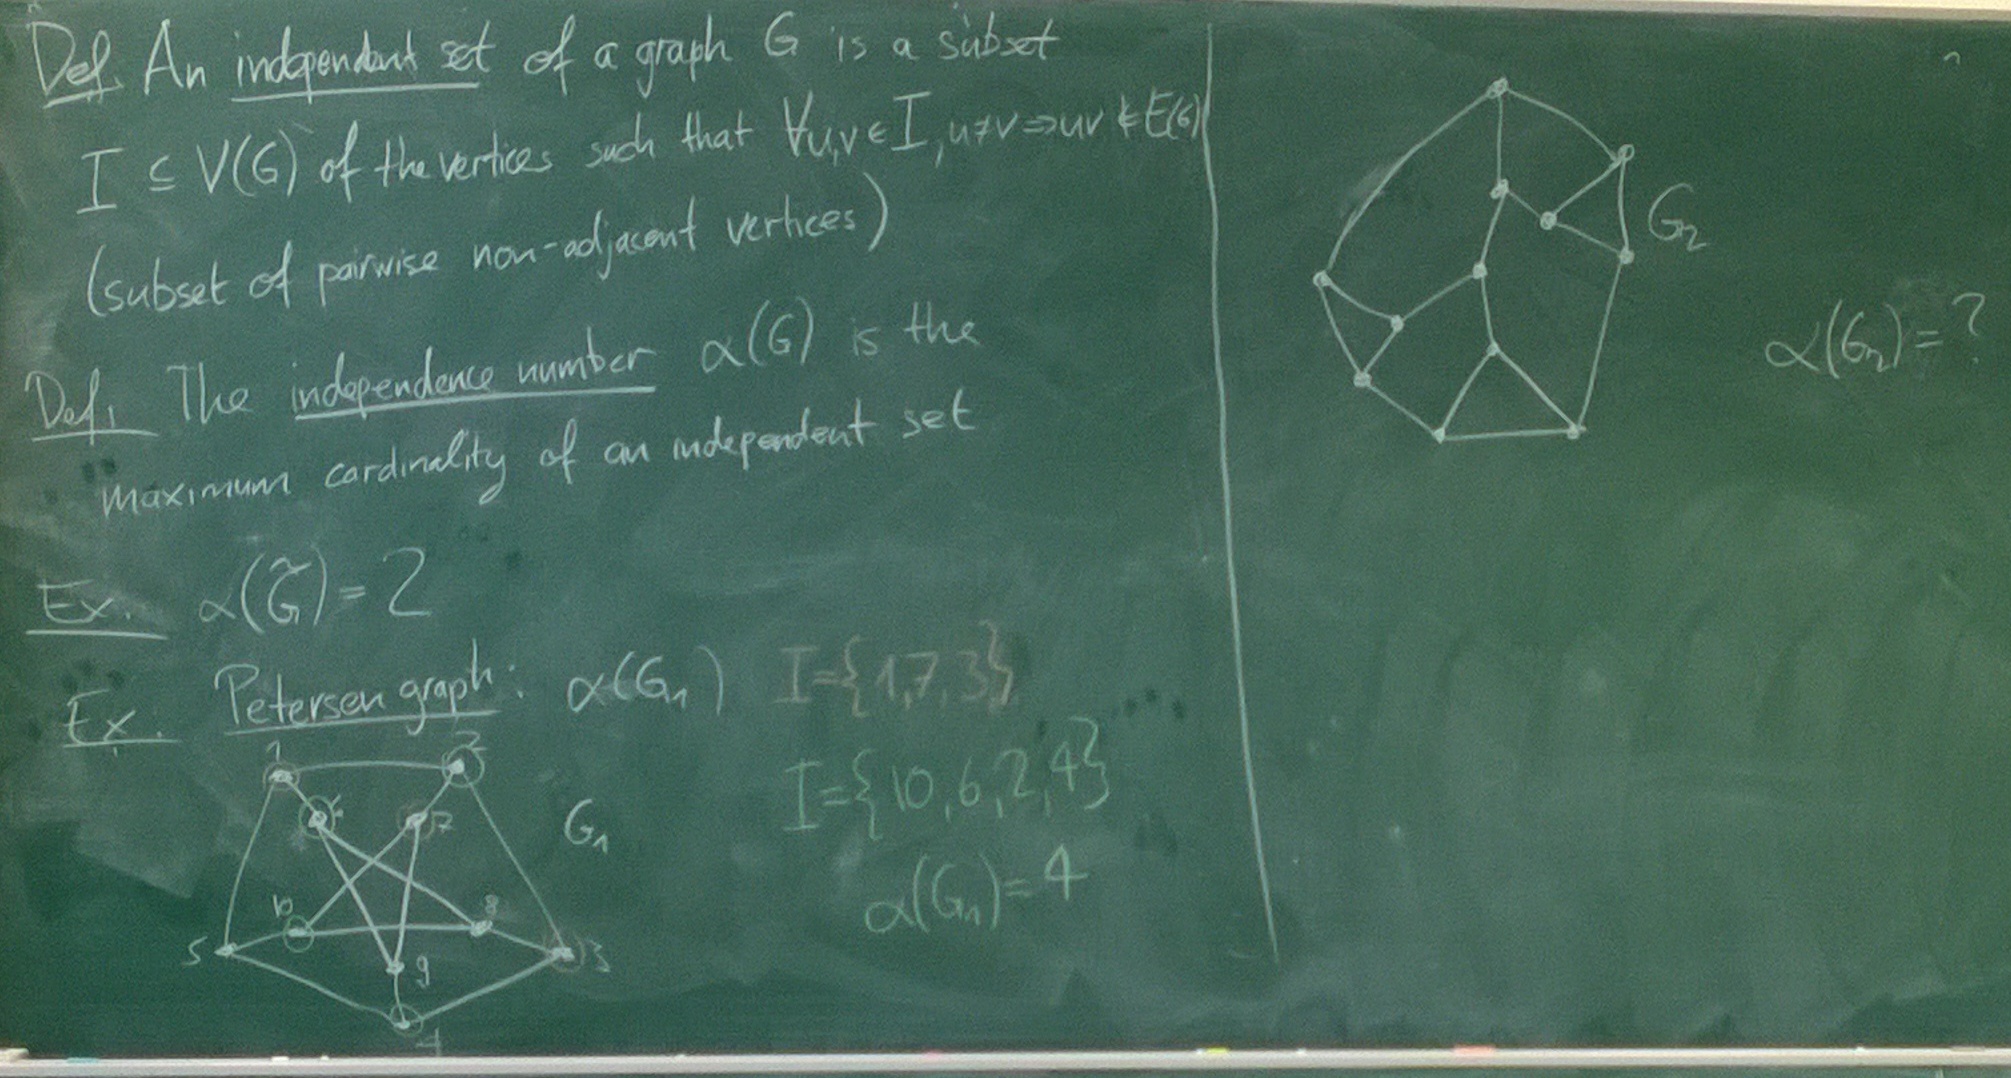 Def. An independent set of a graph G is a subset
I ⊆ V(G) of the vertices such that ∀u,v ∈ I, u≠v ⇒ uv ∉ E(G)
(subset of pairwise non-adjacent vertices)
Def. The independence number α(G) is the
maximum cardinality of an independent set
Ex. α(G̃) = 2
Ex. Petersen graph: α(G₁) I={1,7,3}
I={10,6,2,4}
α(G₁)=4
1 2
6 7
G₁
10 8
5 3
9
4
G₂
α(G₂)=?